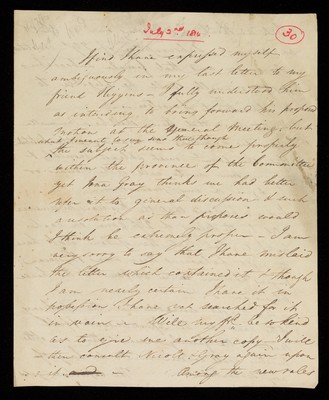 July 2nd 1810
30
I find I have expressed myself
ambiguously in my last letter to my
friend Higgins - I fully understood him
as intending to bring forward his proposed
motion at the General Meeting, but
what I meant to say was that though
the subject seems to come properly
within the province of the Committee
yet Jona Gray thinks we had better
refer it to general discussion & such
a resolution as than proposes would
I think be extremely proper - I am
very sorry to say that I have mislaid
the letter which contained it & though
I am nearly certain I have it in
possession I have yet searched for it
in vain - Will my frd. be so kind
as to give me another copy - I will
then consult Nicoll & Gray again upon
it and - Among the new rules